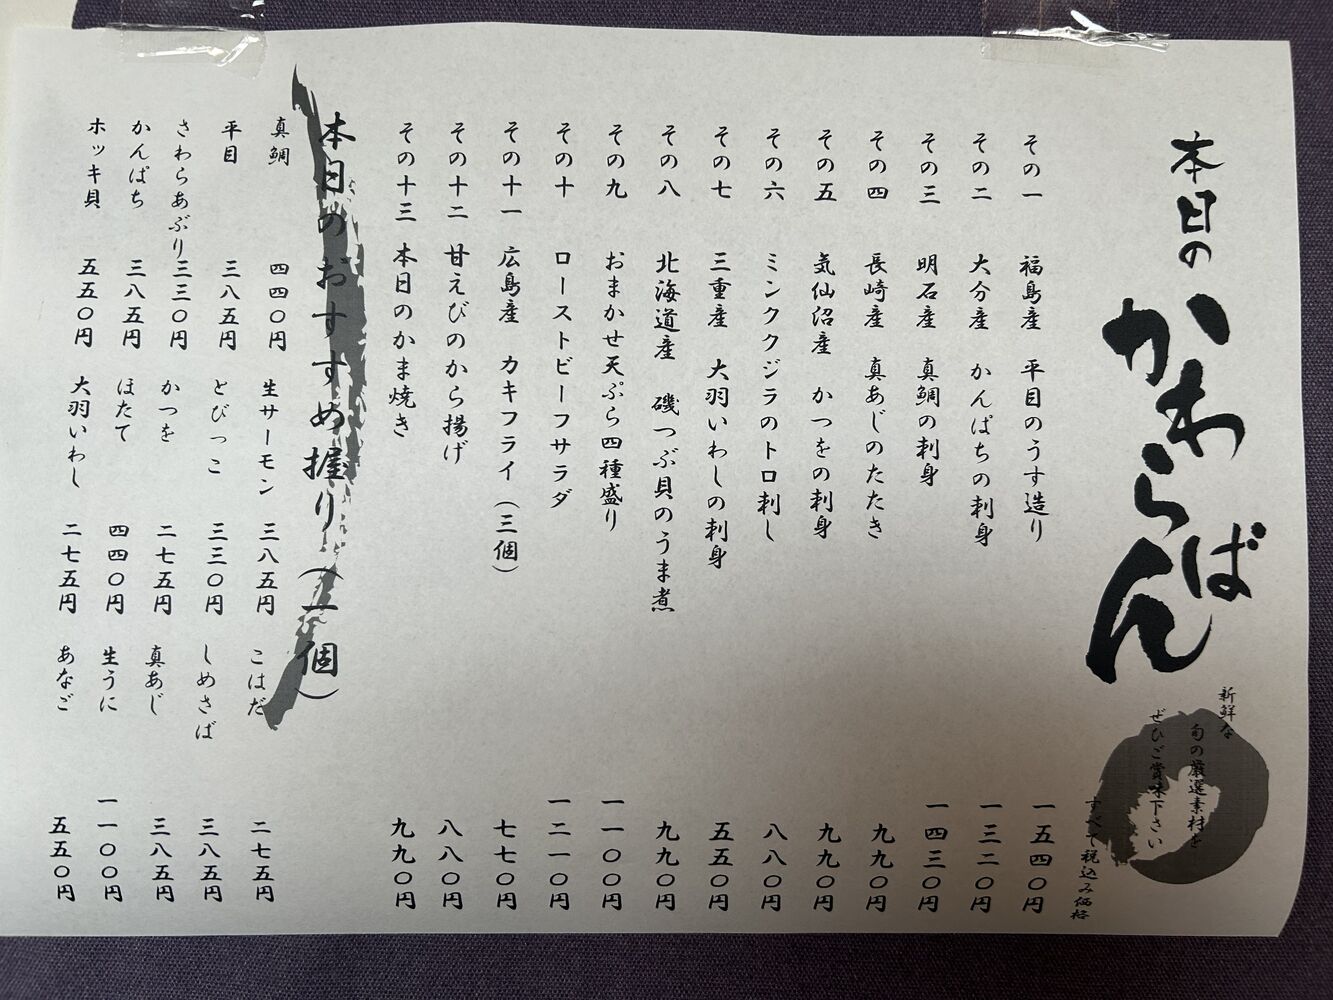 本日のかわらばん
新鮮な
旬の厳選素材を
ぜひご賞味下さい
すべて税込み価格
その一 福島産 平目のうす造り 一五四〇円
その二 大分産 かんぱちの刺身 一三二〇円
その三 明石産 真鯛の刺身 一四三〇円
その四 長崎産 真あじのたたき 九九〇円
その五 気仙沼産 かつをの刺身 九九〇円
その六 ミンククジラのトロ刺し 八八〇円
その七 三重産 大羽いわしの刺身 五五〇円
その八 北海道産 磯つぶ貝のうま煮 九九〇円
その九 おまかせ天ぷら四種盛り 一一〇〇円
その十 ローストビーフサラダ 一二一〇円
その十一 広島産 カキフライ（三個） 七七〇円
その十二 甘えびのから揚げ 八八〇円
その十三 本日のかま焼き 九九〇円
本日のおすすめ握り（一個）
真鯛 四四〇円 生サーモン 三八五円 こはだ 二七五円
平目 三八五円 とびっこ 三三〇円 しめさば 三八五円
さわらあぶり 三三〇円 かつを 二七五円 真あじ 三八五円
かんぱち 三八五円 ほたて 四四〇円 生うに 一一〇〇円
ホッキ貝 五五〇円 大羽いわし 二七五円 あなご 五五〇円